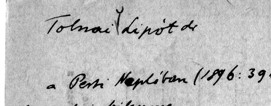 Tolnai Lipót dr
a Pesti Naplóban (1896: 39